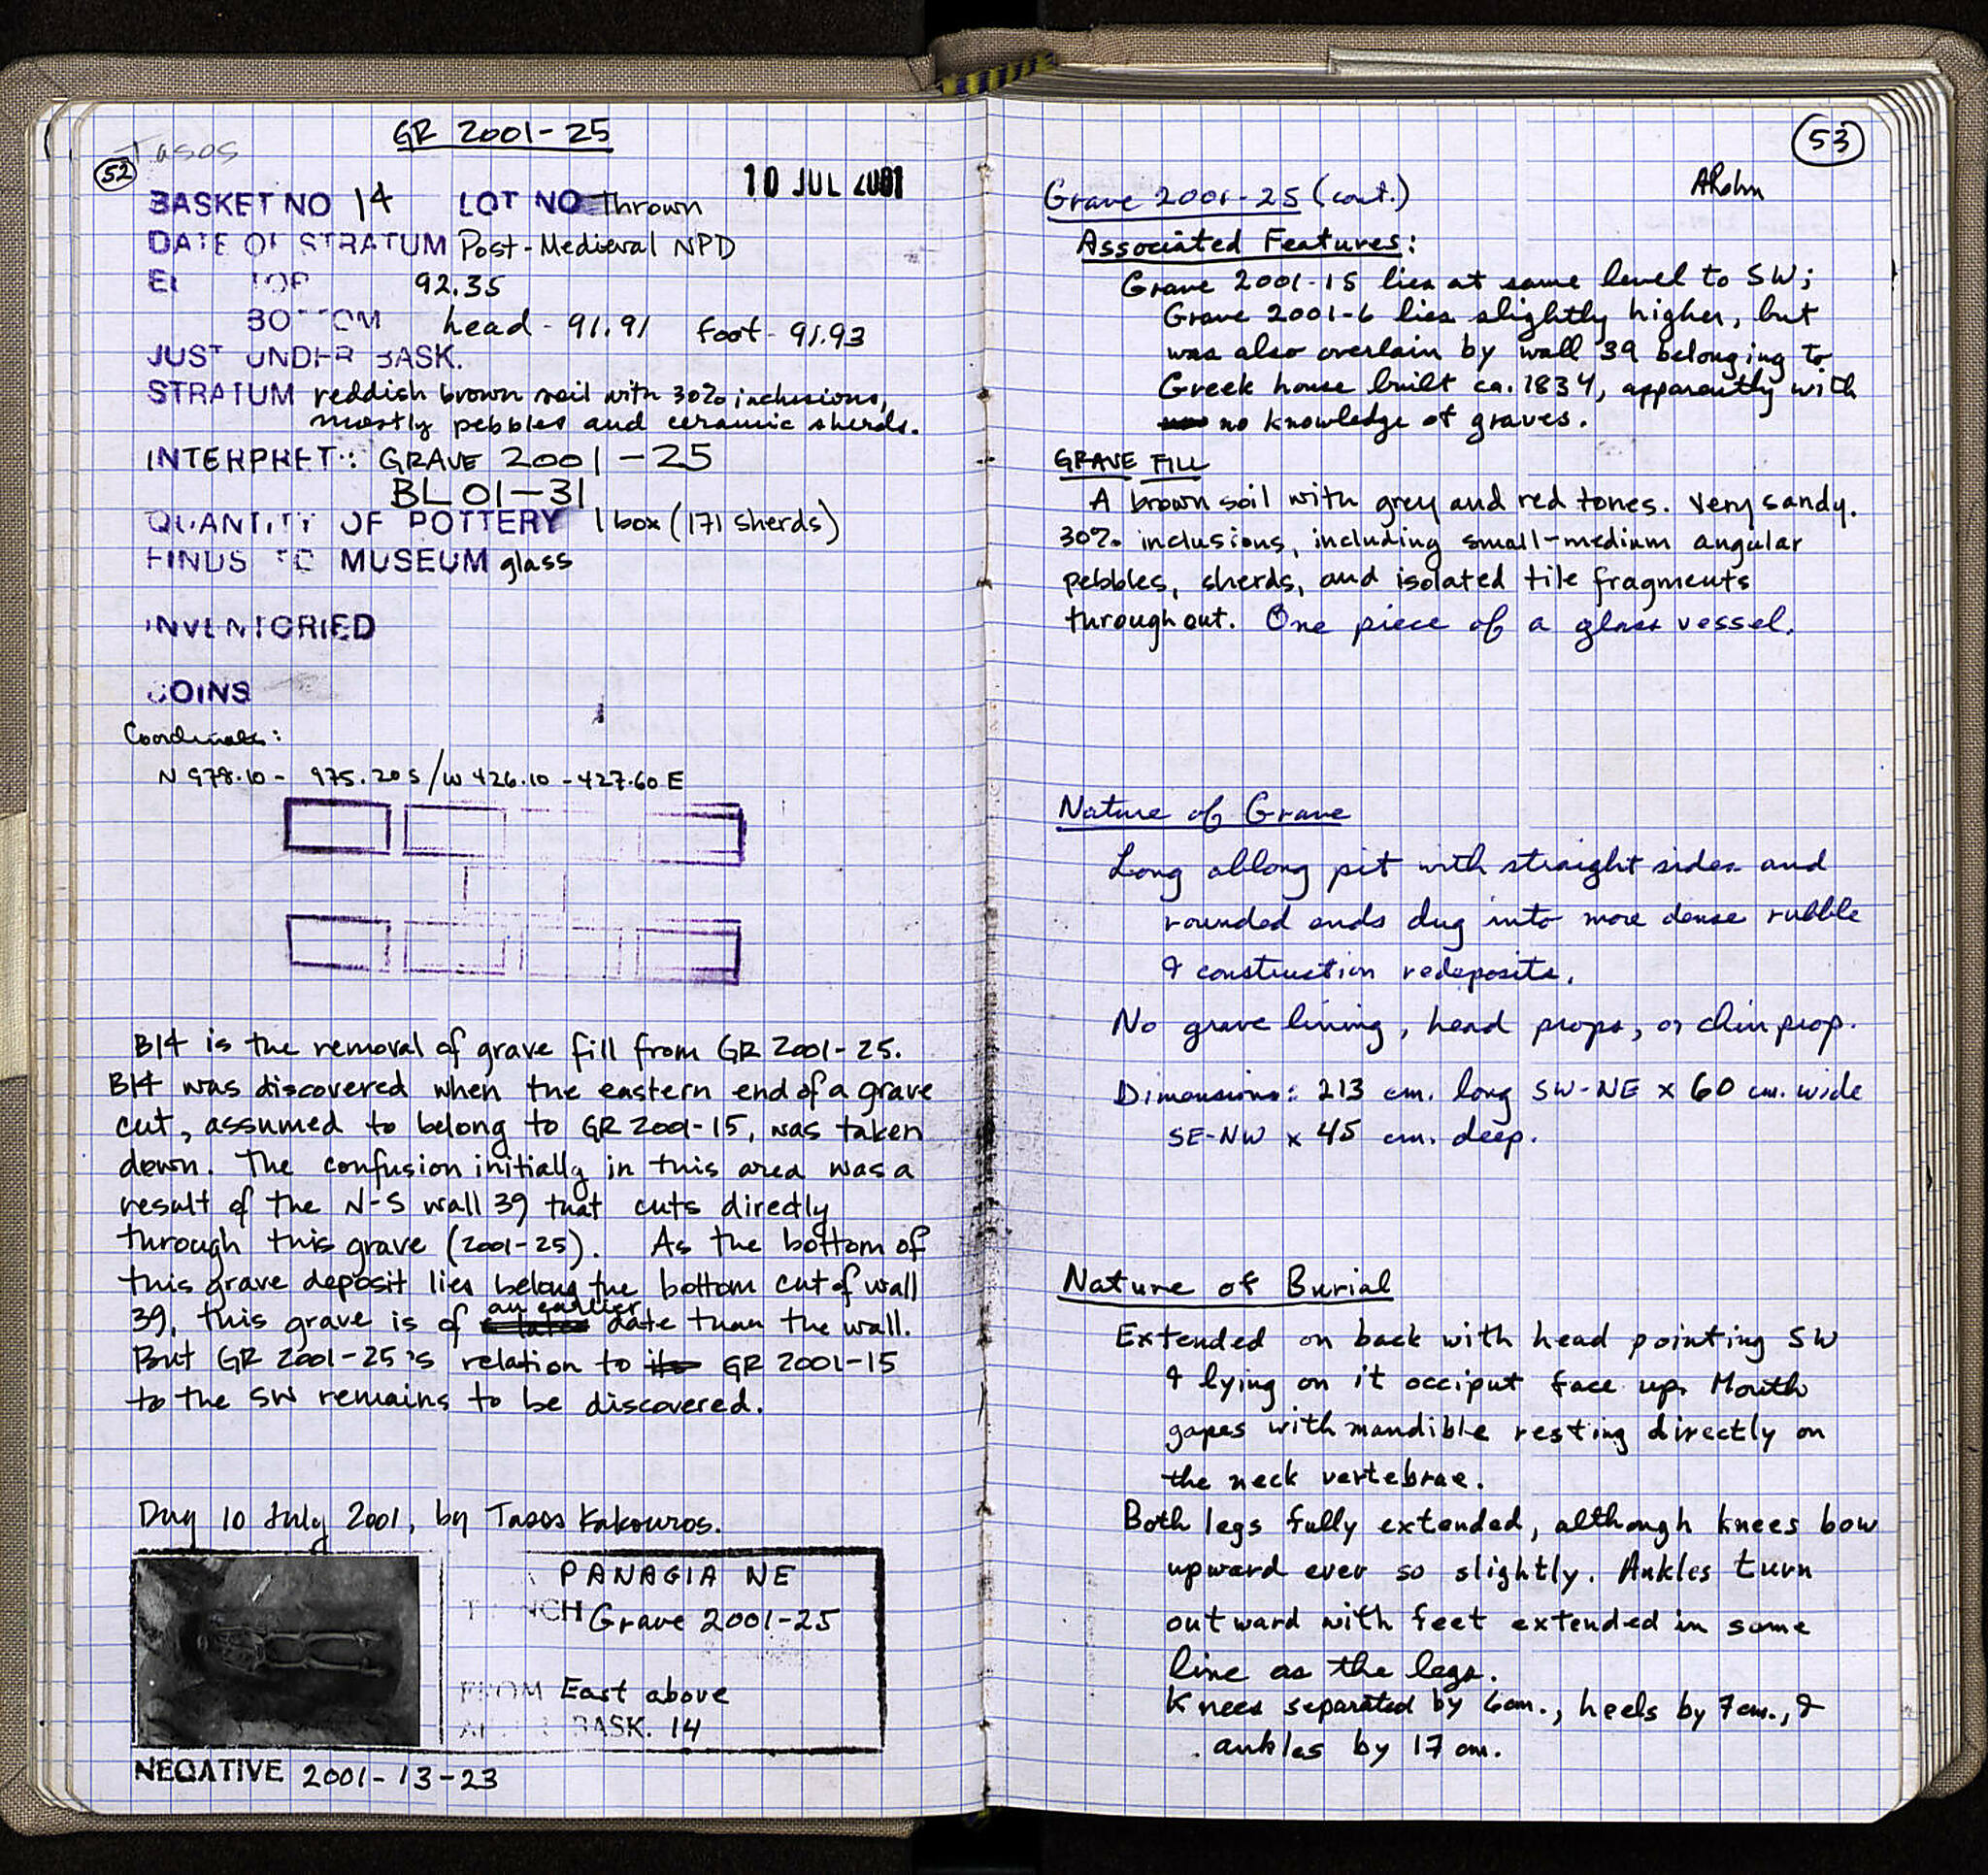 Tasos
GR 2001-25
52
10 JUL 2001
BASKET NO 14 LOT NO Thrown
DATE OF STRATUM Post-Medieval NPD
EL TOP 92.35
BOTTOM head - 91.91 foot - 91.93
JUST UNDER BASK.
STRATUM reddish brown soil with 30% inclusions,
mostly pebbles and ceramic sherds.
INTERPRET.: GRAVE 2001-25
BL 01-31
QUANTITY OF POTTERY 1 box (171 sherds)
FINDS TO MUSEUM glass
INVENTORIED
COINS
Coordinates:
N 978.10 - 975.20 S / W 426.10 - 427.60 E
B14 is the removal of grave fill from GR 2001-25.
B14 was discovered when the eastern end of a grave
cut, assumed to belong to GR 2001-15, was taken
down. The confusion initially in this area was a
result of the N-S wall 39 that cuts directly
through this grave (2001-25). As the bottom of
this grave deposit lies below the bottom cut of wall
39, this grave is of an earlier date than the wall.
But GR 2001-25's relation to GR 2001-15
to the SW remains to be discovered.
Dug 10 July 2001, by Tasos Kakouros.
PANAGIA NE
TRENCH Grave 2001-25
FROM East above
AFTER BASK. 14
NEGATIVE 2001-13-23
53
ARohn
Grave 2001-25 (cont.)
Associated Features:
Grave 2001-15 lies at same level to SW;
Grave 2001-6 lies slightly higher, but
was also overlain by wall 39 belonging to
Greek house built ca. 1834, apparently with
no knowledge of graves.
GRAVE FILL
A brown soil with grey and red tones. Very sandy.
30% inclusions, including small-medium angular
pebbles, sherds, and isolated tile fragments
throughout. One piece of a glass vessel.
Nature of Grave
Long oblong pit with straight sides and
rounded ends dug into more dense rubble
& construction redeposits.
No grave lining, head props, or chin prop.
Dimensions: 213 cm. long SW-NE x 60 cm. wide
SE-NW x 45 cm. deep.
Nature of Burial
Extended on back with head pointing SW
& lying on it occiput face up. Mouth
gapes with mandible resting directly on
the neck vertebrae.
Both legs fully extended, although knees bow
upward ever so slightly. Ankles turn
outward with feet extended in same
line as the legs.
Knees separated by 6cm., heels by 7cm., &
ankles by 17 cm.